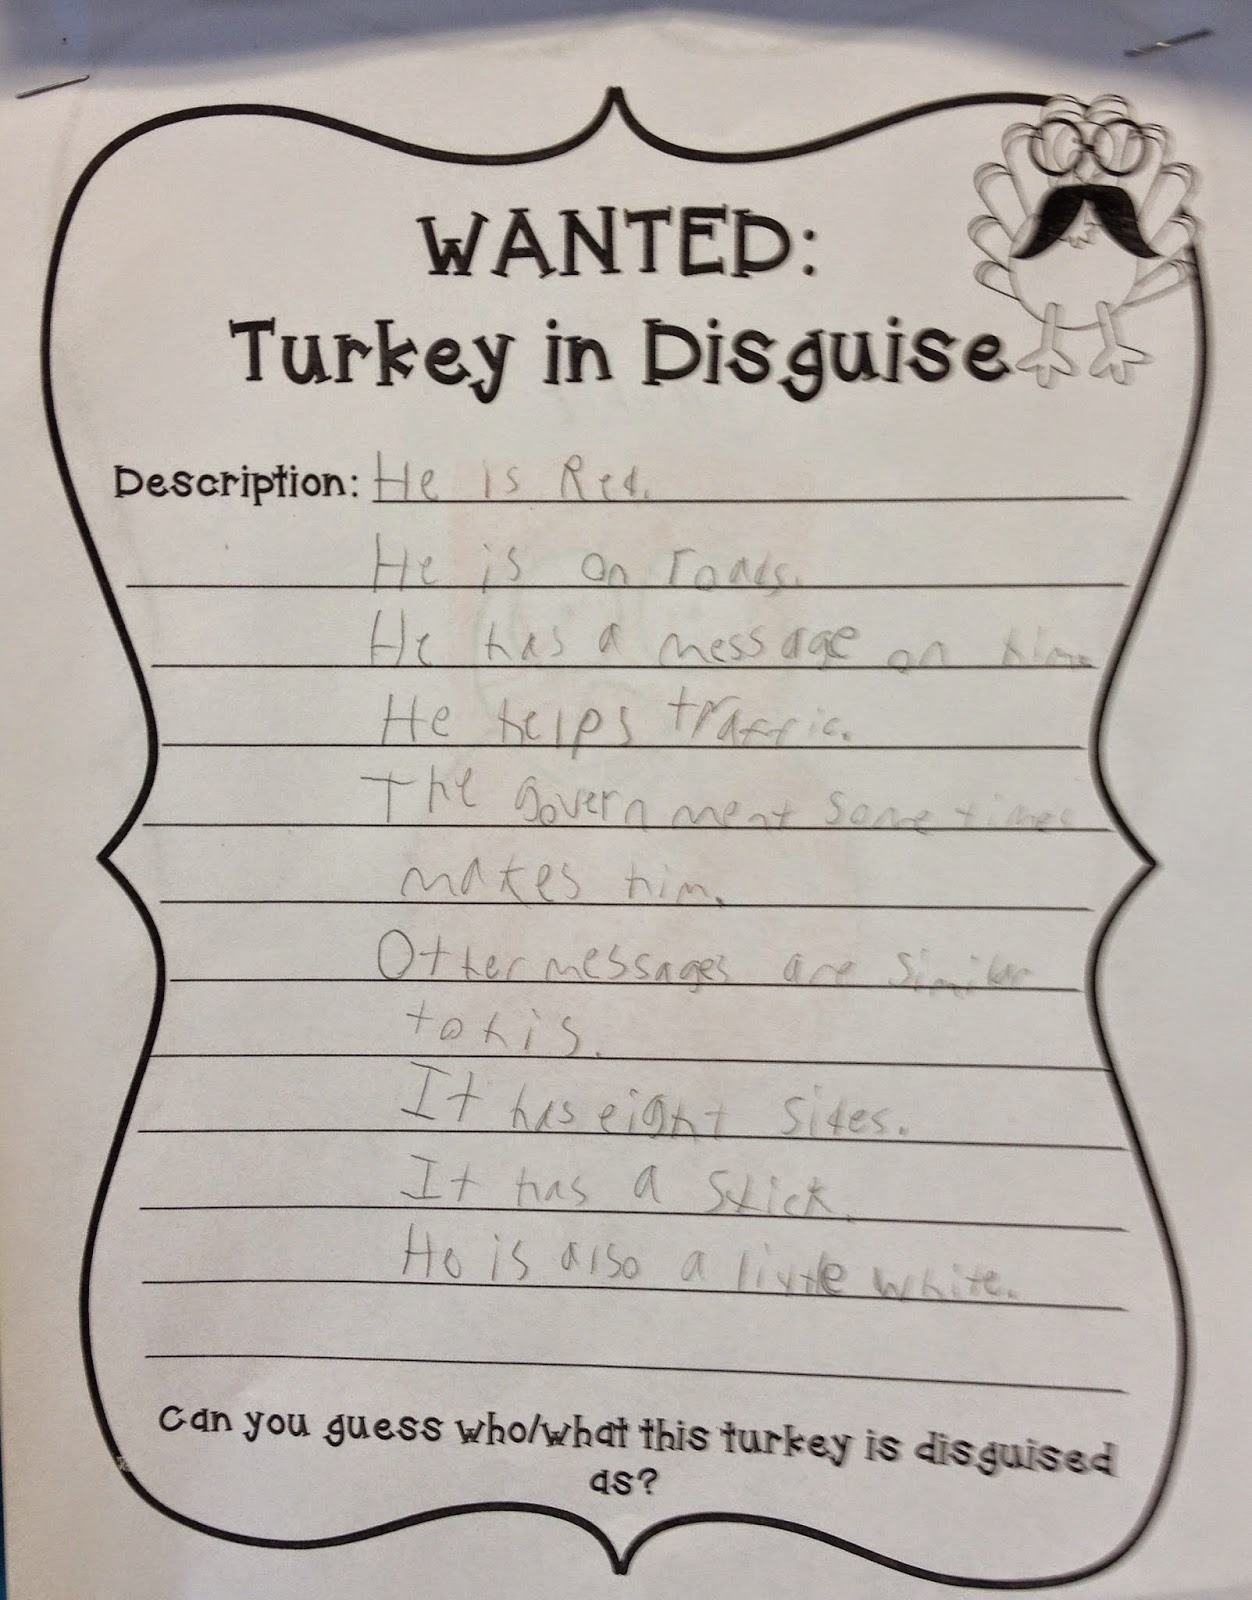 WANTED:
Turkey in Disguise
Description: He is Red.
He is on roads.
He has a message on him
He helps traffic.
The government sometimes
makes him.
Other messages are similar
to his.
It has eight sides.
It has a stick.
He is also a little white.
Can you guess who/what this turkey is disguised
as?